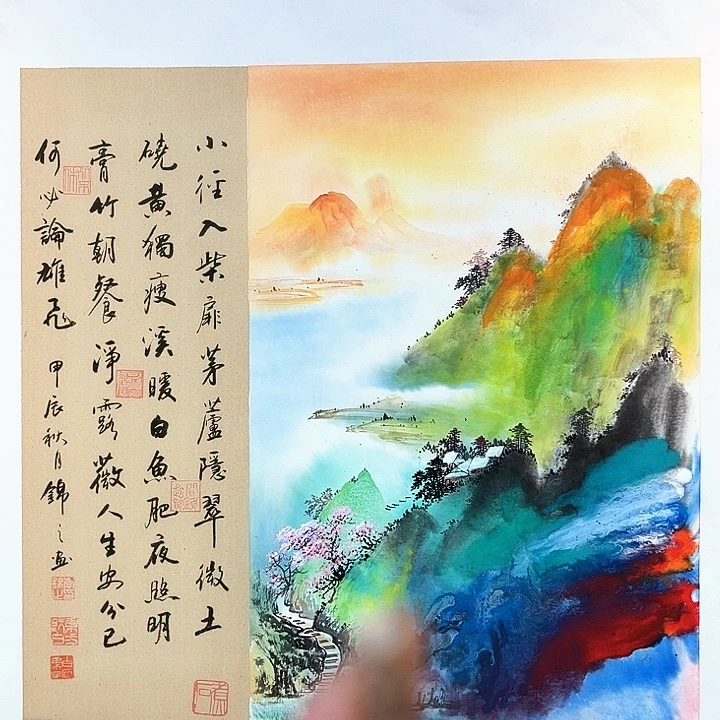 小徑入柴扉茅蘆隱翠微土
磽黄獨瘦溪暖白魚肥夜照明
膏竹朝餐淨露薇人生安分已
何必論雄飛 甲辰秋月錦之画